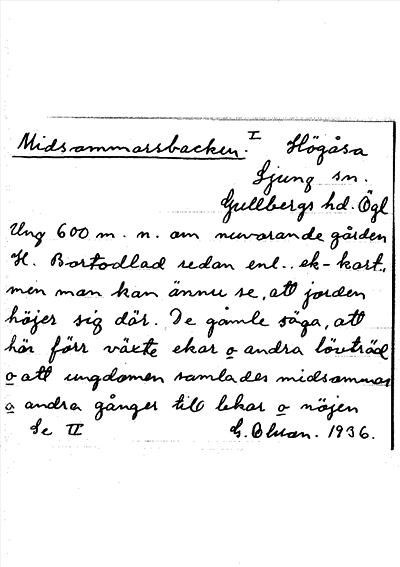 Midsommarsbacken. I Högåsa
Ljung sn.
Gullbergs hd. Ögl
Ung 600 m. n. om nuvarande gården
H. Bortodlad sedan enl. ek-kart.,
men man kan ännu se, att jorden
höjer sig där. De gamle säga, att
här förr växte ekar o andra lövträd
o att ungdomen samlades midsommar
o andra gånger till lekar o nöjen
Se II G. Olsson. 1936.